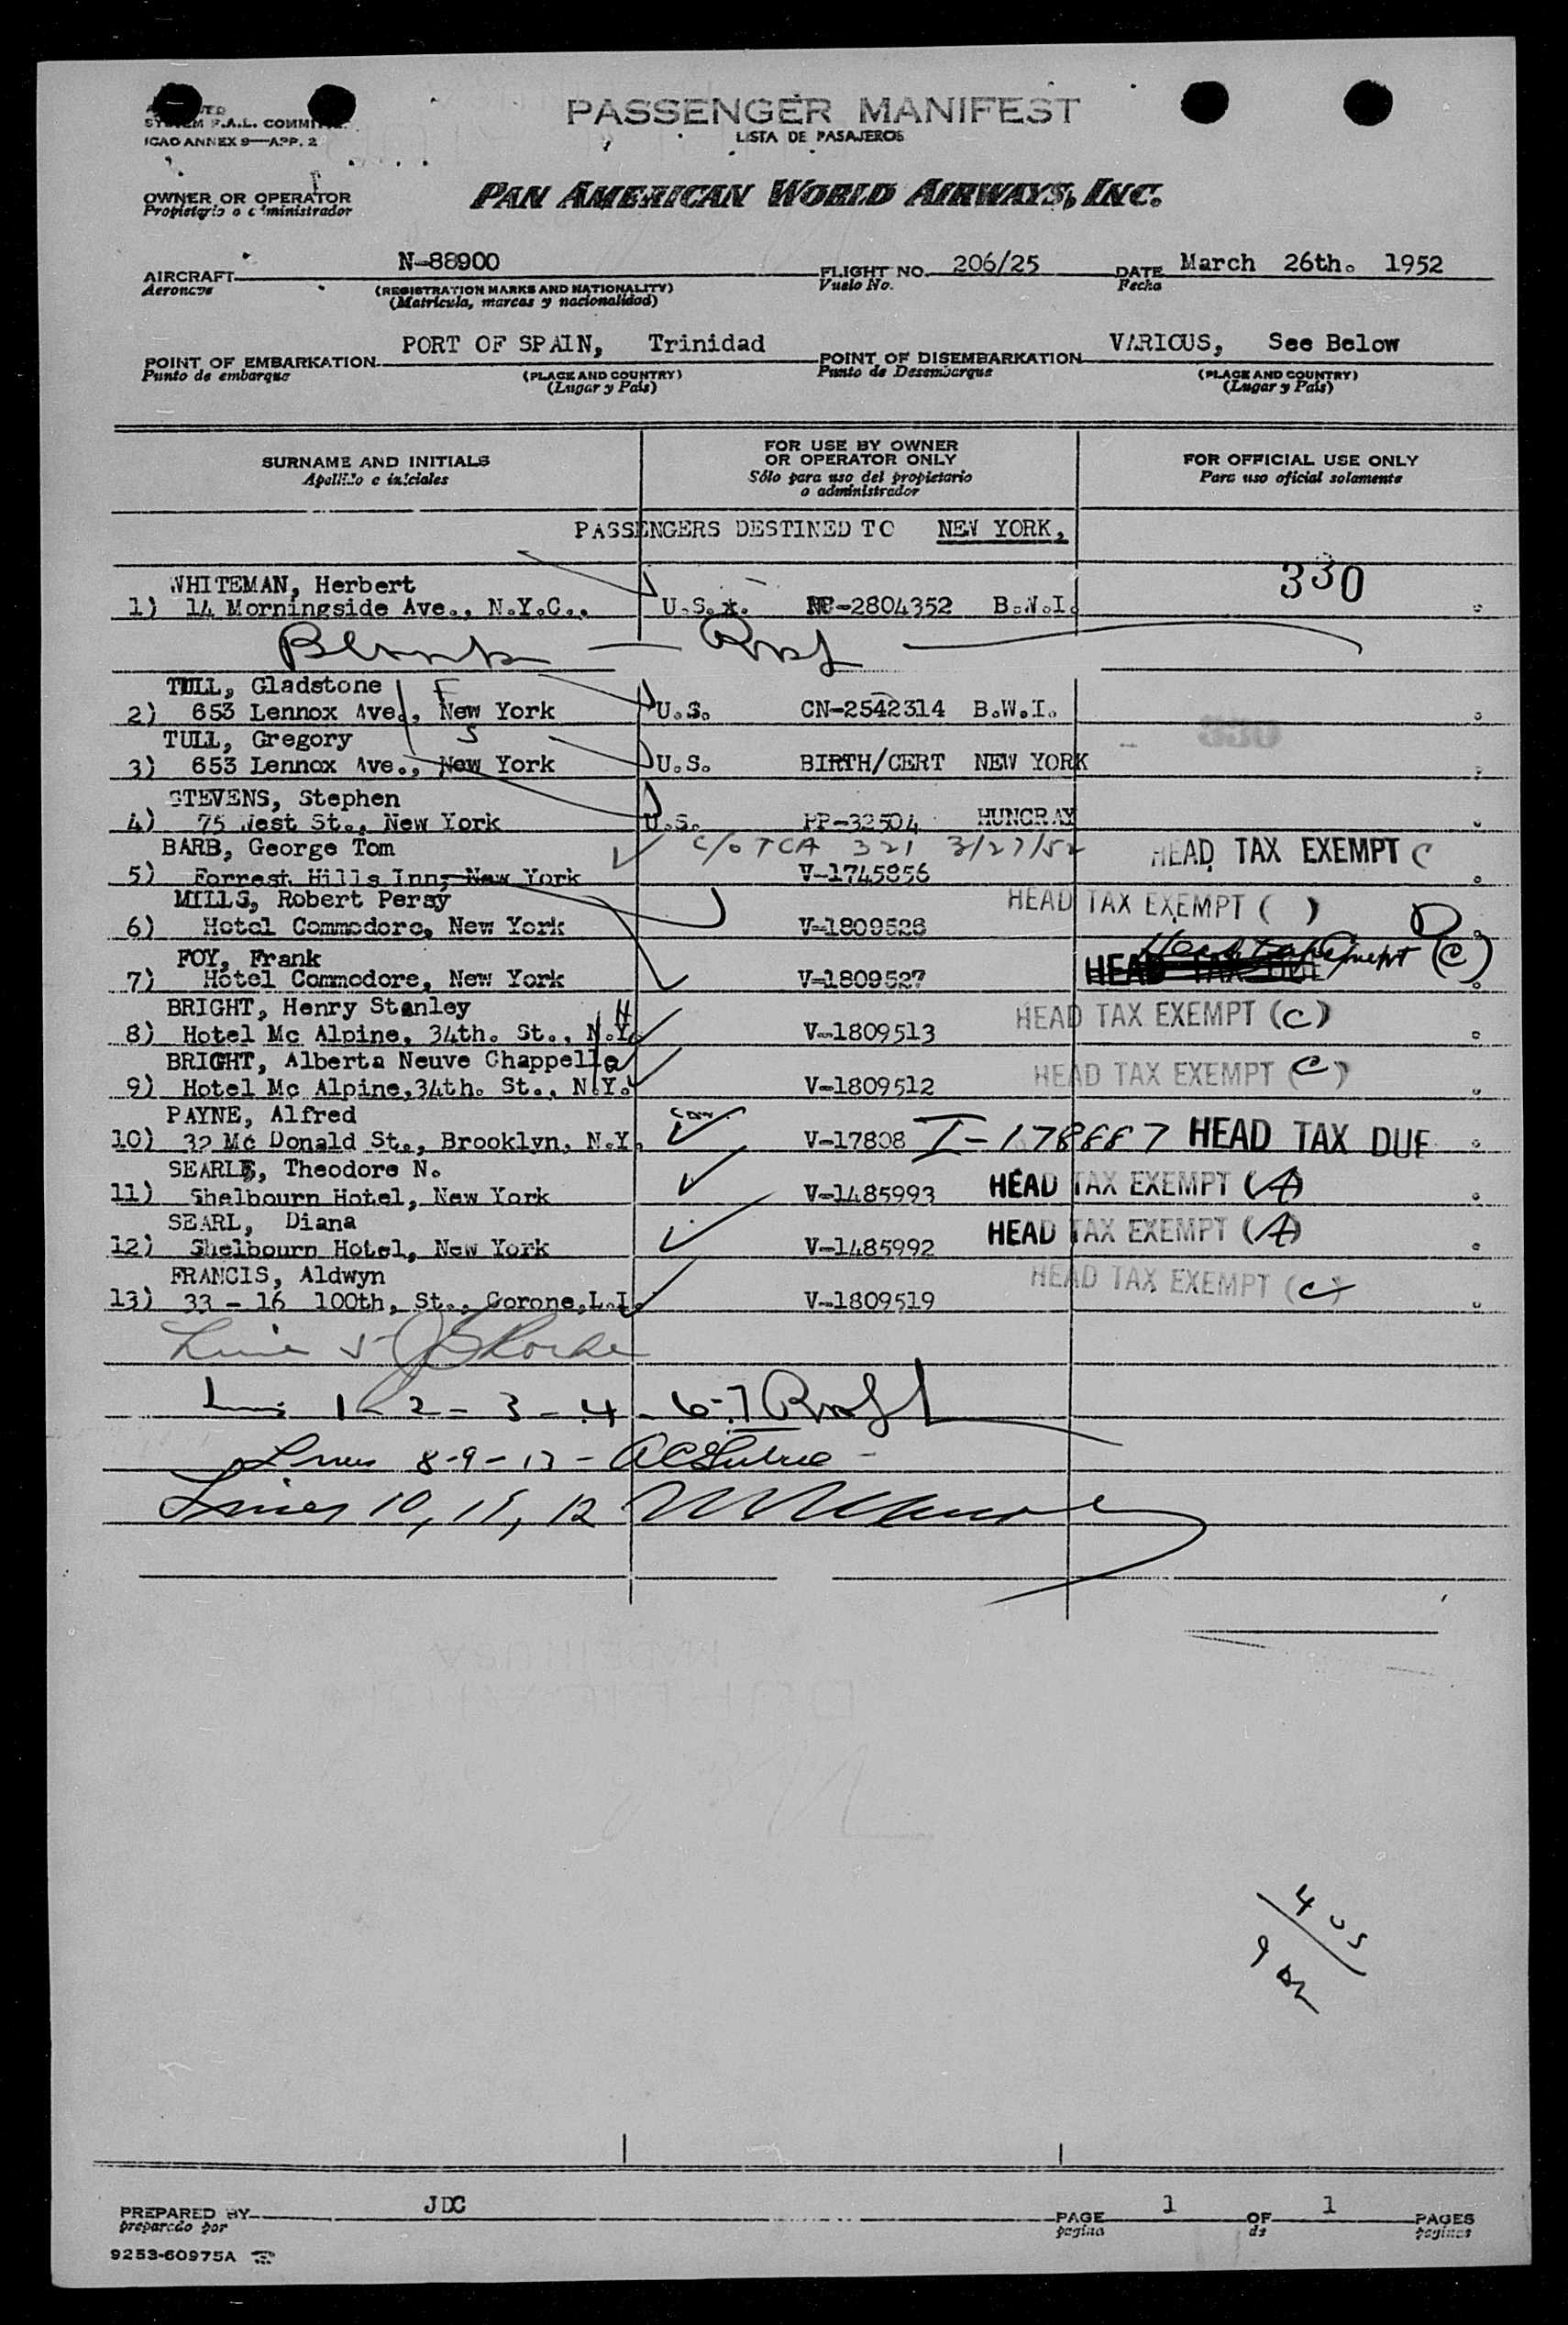 PASSENGER MANIFEST
LISTA DE PASAJEROS
F.A.L.
ICAO ANNEX 9—APP. 2
OWNER OR OPERATOR
Propietario o
PAN AMERICAN WORLD AIRWAYS, INC.
AIRCRAFT N-88900 FLIGHT NO. 206/25 DATE March 26th. 1952
Aeronave (REGISTRATION MARKS AND NATIONALITY) Vuelo No. Fecha
(Matricula, marcas y nacionalidad)
POINT OF EMBARKATION PORT OF SPAIN, Trinidad POINT OF DISEMBARKATION VARIOUS, See Below
Punto de embarque (PLACE AND COUNTRY) Punto de Desembarque (PLACE AND COUNTRY)
(Lugar y País) (Lugar y País)
SURNAME AND INITIALS FOR USE BY OWNER OR OPERATOR ONLY FOR OFFICIAL USE ONLY
Apellido e iniciales Sólo para uso del propietario o administrador Para uso oficial solamente
PASSENGERS DESTINED TO NEW YORK,
WHITEMAN, Herbert 330
1) 14 Morningside Ave., N.Y.C., U.S. -2804352 B.W.I.
TULL, Gladstone F
2) 653 Lennox Ave., New York U.S. CN-2542314 B.W.I.
TULL, Gregory S 330
3) 653 Lennox Ave., New York U.S. BIRTH/CERT NEW YORK
STEVENS, Stephen
4) 75 West St., New York U.S. PP-32504 HUNGRAY
BARB, George Tom C/o TCA 321 3/27/52 HEAD TAX EXEMPT C
5) Forrest Hills Inn, New York V-1745856
MILLS, Robert Persy HEAD TAX EXEMPT ( ) D
6) Hotel Commodore, New York V-1809526
FOY, Frank Head Tax Exempt (C)
7) Hotel Commodore, New York V-1809527 HEAD TAX DUE
BRIGHT, Henry Stanley H HEAD TAX EXEMPT (C)
8) Hotel Mc Alpine, 34th. St., N.Y. V-1809513
BRIGHT, Alberta Neuve Chappelle HEAD TAX EXEMPT (C)
9) Hotel Mc Alpine,34th. St., N.Y. V-1809512
PAYNE, Alfred
10) 32 Mc Donald St., Brooklyn, N.Y. V-17808 I-178887 HEAD TAX DUE
SEARLE, Theodore N.
11) Shelbourn Hotel, New York V-1485993 HEAD TAX EXEMPT (A)
SEARL, Diana
12) Shelbourn Hotel, New York V-1485992 HEAD TAX EXEMPT (A)
FRANCIS, Aldwyn HEAD TAX EXEMPT (C)
13) 33 - 16 100th, St., Corone,L.I. V-1809519
Line 5
1 - 2 - 3 - 4 - 6-7
Lines 8-9-13 -
Lines 10, 11, 12
4 US
9
PREPARED BY JDC PAGE 1 OF 1 PAGES
preparado por pagina de paginas
9253-60975A